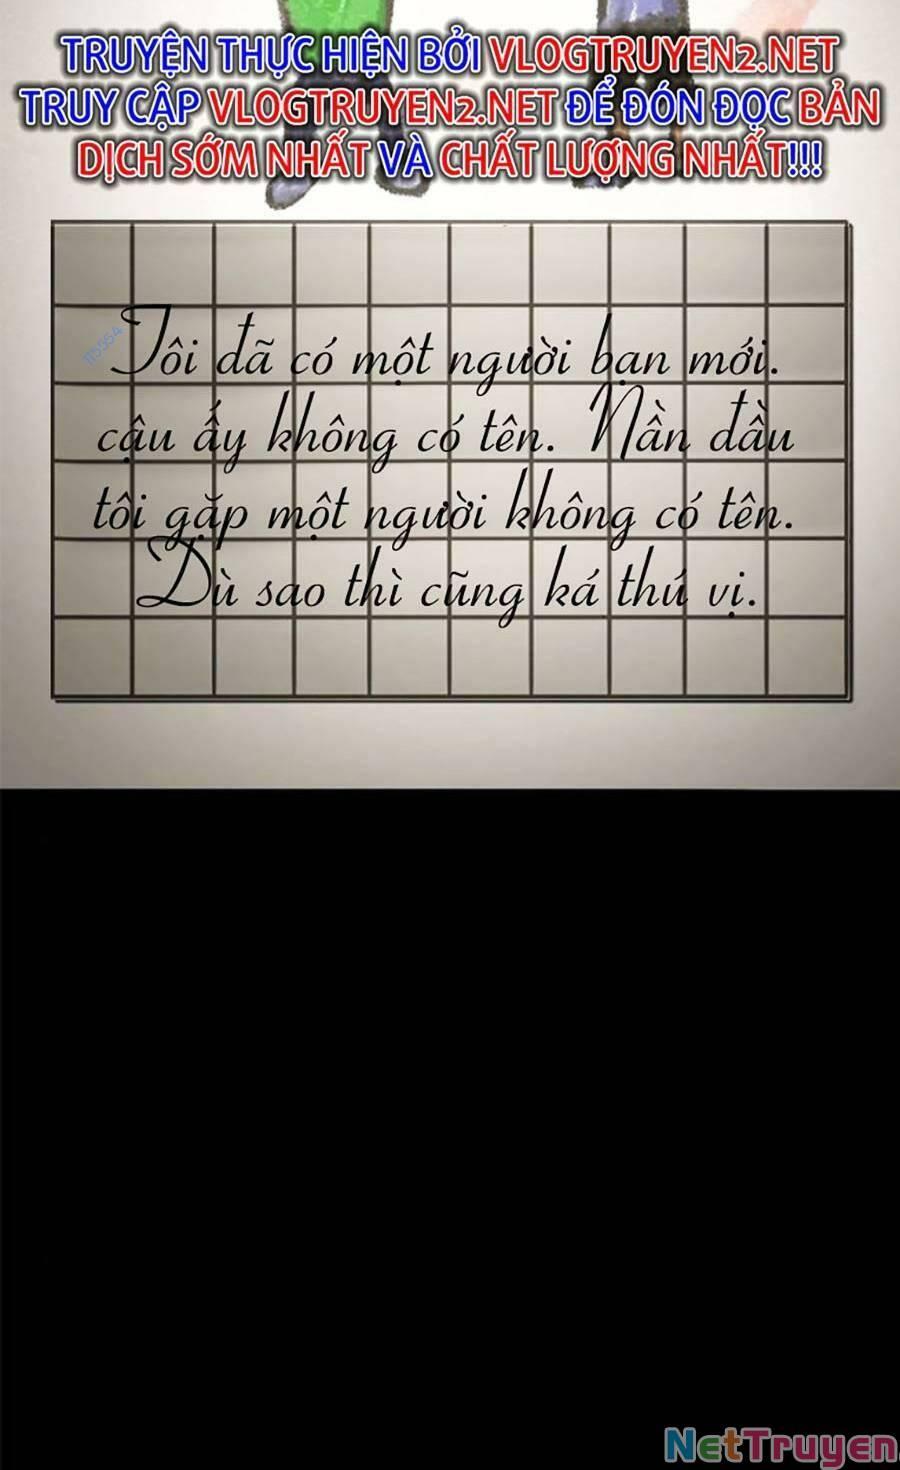 TRUYỆN THỰC HIỆN BỞI VLOGTRUYEN2.NET
TRUY CẬP VLOGTRUYEN2.NET ĐỂ ĐÓN ĐỌC BẢN
DỊCH SỚM NHẤT VÀ CHẤT LƯỢNG NHẤT!!!
115554
Tôi đã có một người bạn mới.
cậu ấy không có tên. Nần đầu
tôi gặp một người không có tên.
Dù sao thì cũng ká thú vị.
NetTruyen